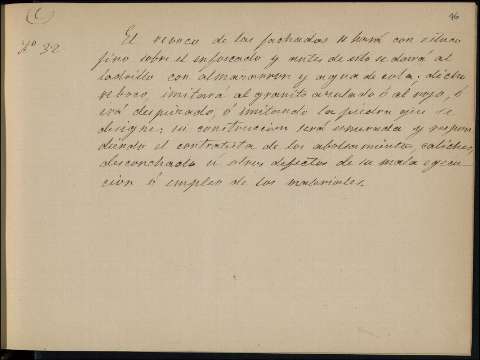 (C)
46
Nº 32
El revoco de las fachadas se hará con estuco
fino sobre el enfoscado y antes de esto se dará al
ladrillo con almazarron y agua de cola; dicho
revoco, imitará al granito azulado ó al rojo, ó
irá despiezado, ó imitando la piedra que se
designe; su construcción será esmerada y respon
diendo el contratista de los abolsamientos, caliches,
desconchado ú otros defectos de su mala ejecu-
cion ó empleo de los materiales.